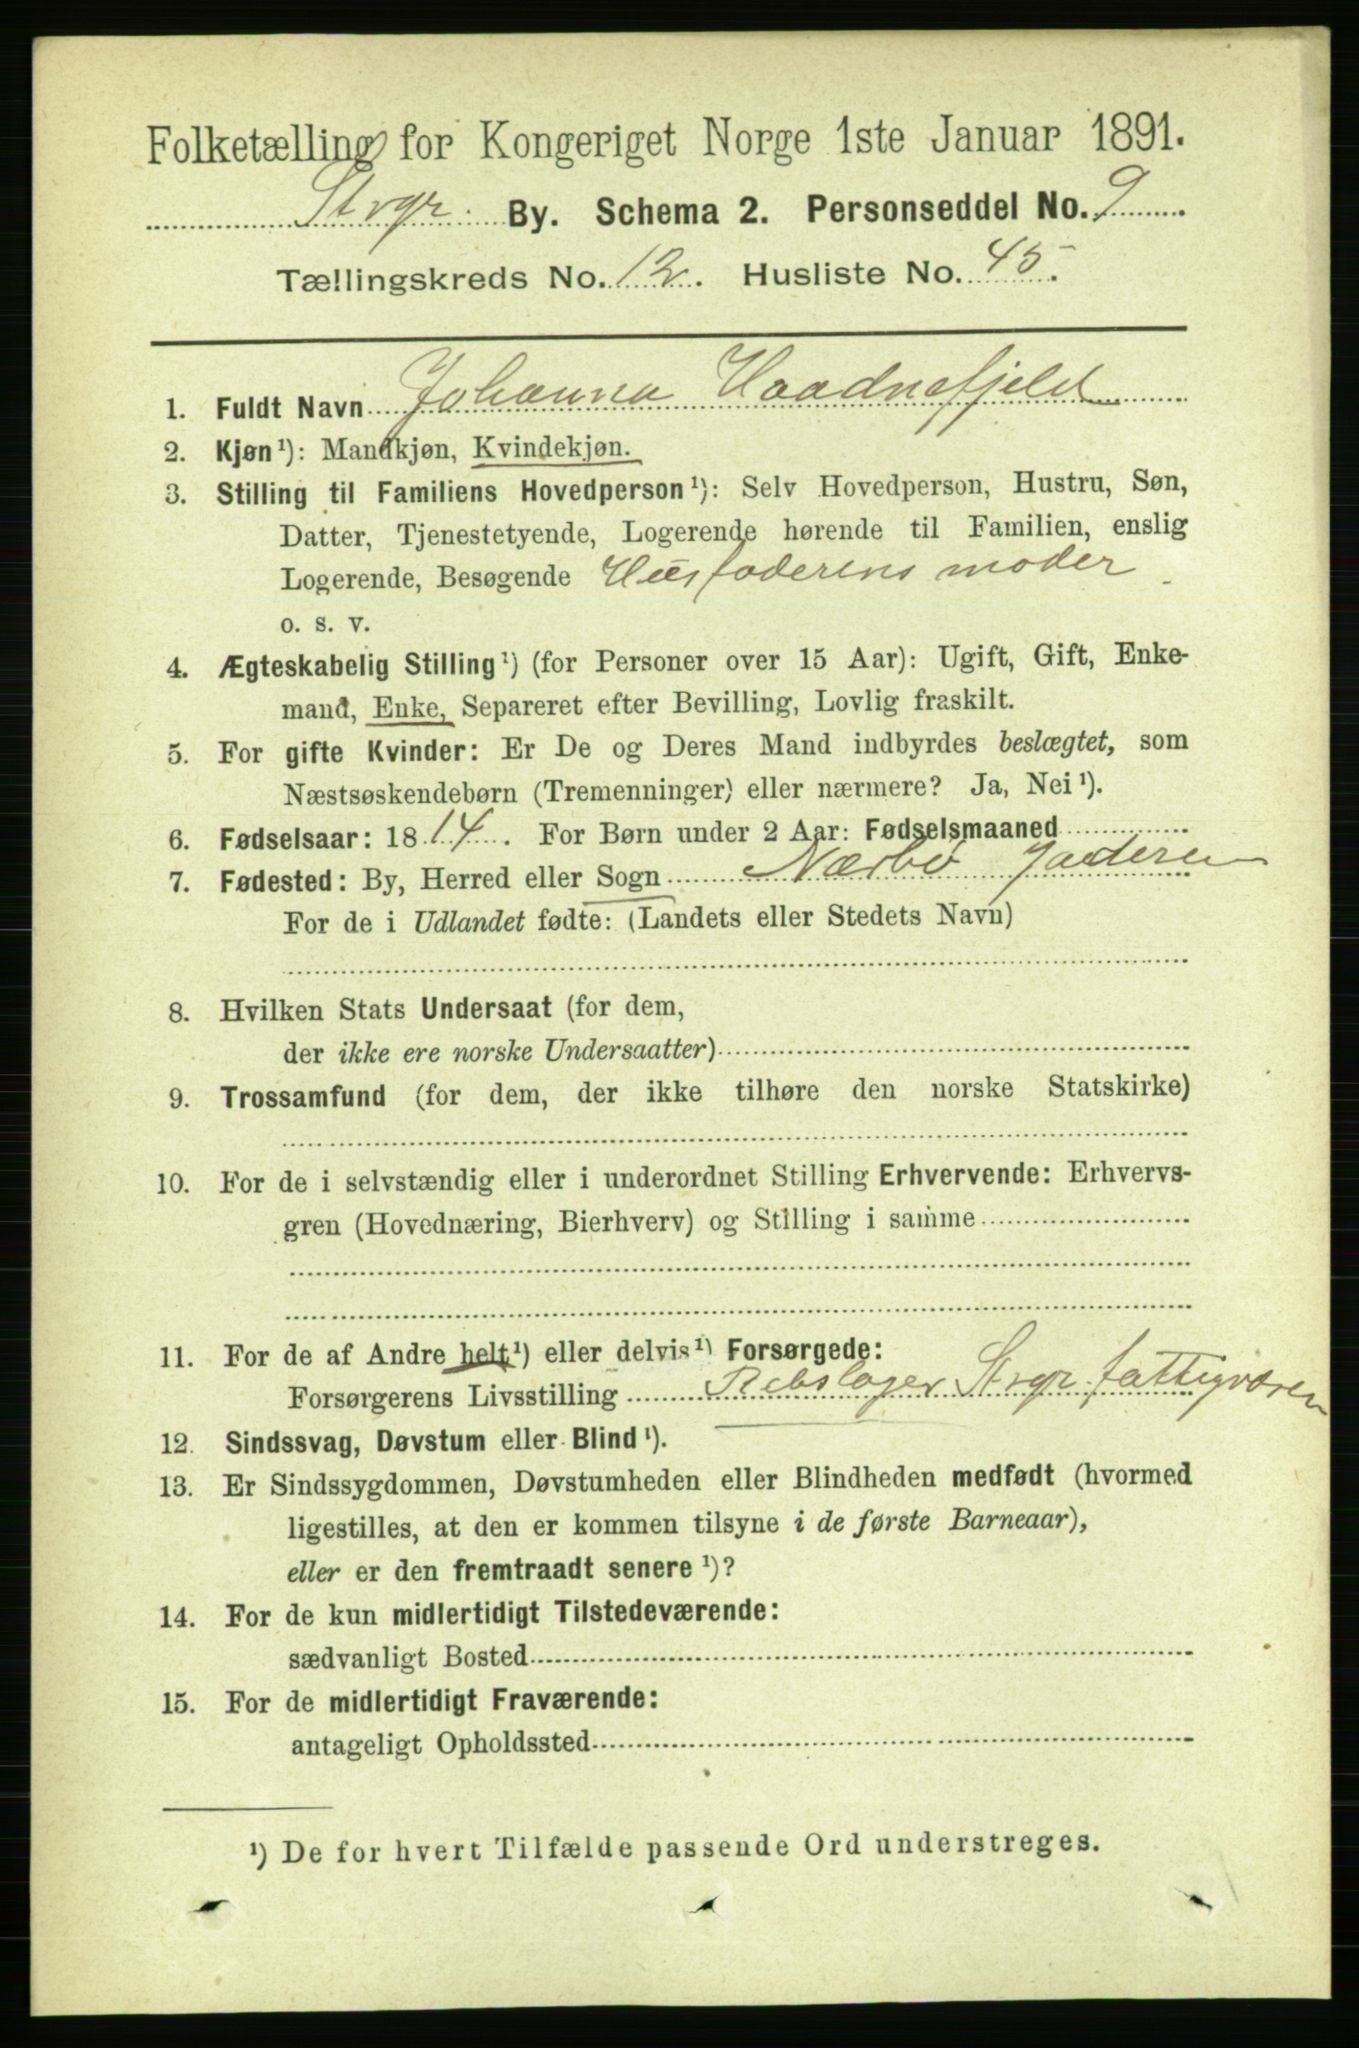 Folketælling for Kongeriget Norge 1ste Januar 1891.
Stvgr. By. Schema 2. Personseddel No. 9
Tællingskreds No. 12. Husliste No. 45.
1. Fuldt Navn Johanna Haadnefjeld
2. Kjøn¹): Mandkjøn, Kvindekjøn.
3. Stilling til Familiens Hovedperson¹): Selv Hovedperson, Hustru, Søn,
Datter, Tjenestetyende, Logerende hørende til Familien, enslig
Logerende, Besøgende Husfaderens moder
o. s. v.
4. Ægteskabelig Stilling¹) (for Personer over 15 Aar): Ugift, Gift, Enke-
mand, Enke, Separeret efter Bevilling, Lovlig fraskilt.
5. For gifte Kvinder: Er De og Deres Mand indbyrdes beslægtet, som
Næstsøskendebørn (Tremenninger) eller nærmere? Ja, Nei¹).
6. Fødselsaar: 1814. For Børn under 2 Aar: Fødselsmaaned
7. Fødested: By, Herred eller Sogn Nærbø Jæderen
For de i Udlandet fødte: (Landets eller Stedets Navn)
8. Hvilken Stats Undersaat (for dem,
der ikke ere norske Undersaatter)
9. Trossamfund (for dem, der ikke tilhøre den norske Statskirke)
10. For de i selvstændig eller i underordnet Stilling Erhvervende: Erhvervs-
gren (Hovednæring, Bierhverv) og Stilling i samme
11. For de af Andre helt¹) eller delvis¹) Forsørgede:
Forsørgerens Livsstilling Rebslager Stvgr fattigvæsen
12. Sindssvag, Døvstum eller Blind¹).
13. Er Sindssygdommen, Døvstumheden eller Blindheden medfødt (hvormed
ligestilles, at den er kommen tilsyne i de første Barneaar),
eller er den fremtraadt senere¹)?
14. For de kun midlertidigt Tilstedeværende:
sædvanligt Bosted
15. For de midlertidigt Fraværende:
antageligt Opholdssted
¹) De for hvert Tilfælde passende Ord understreges.